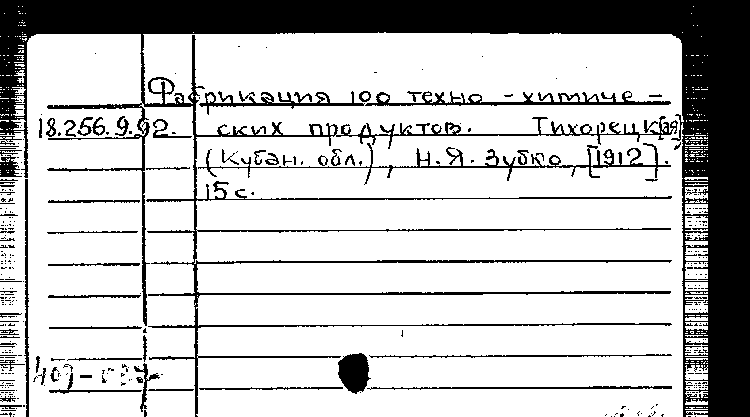 Фабрикация 100 техно-химиче-
18.256.9.92. ских продуктов. Тихорецк[ая]
(Кубан. обл.), Н.Я. Зубко, [1912].
15 с.